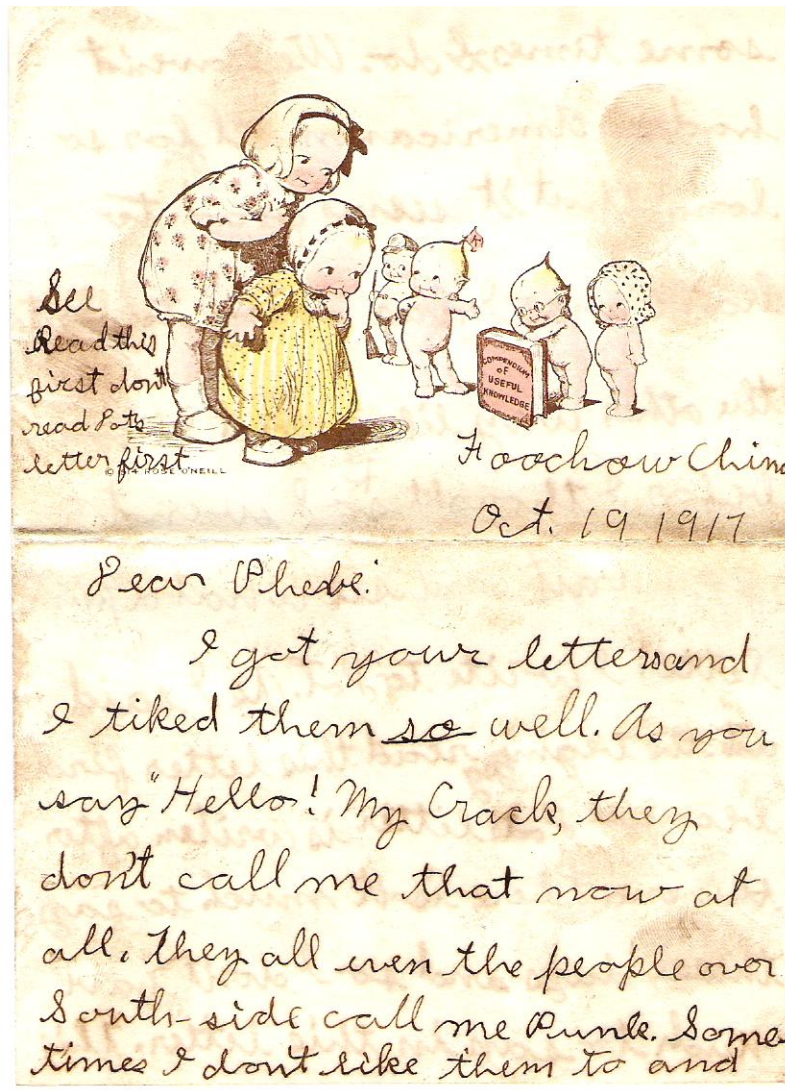 See
Read this
first don't
read Pat's
letter first
COMPENDIUM
OF
USEFUL
KNOWLEDGE
© 1914 ROSE O'NEILL
Foochow China
Oct. 19 1917
Dear Phebe:
I got your letters and
I liked them so well. As you
say "Hello! My Crack, they
don't call me that now at
all. They all even the people over
South-side call me Punk. Some-
times I don't like them to and